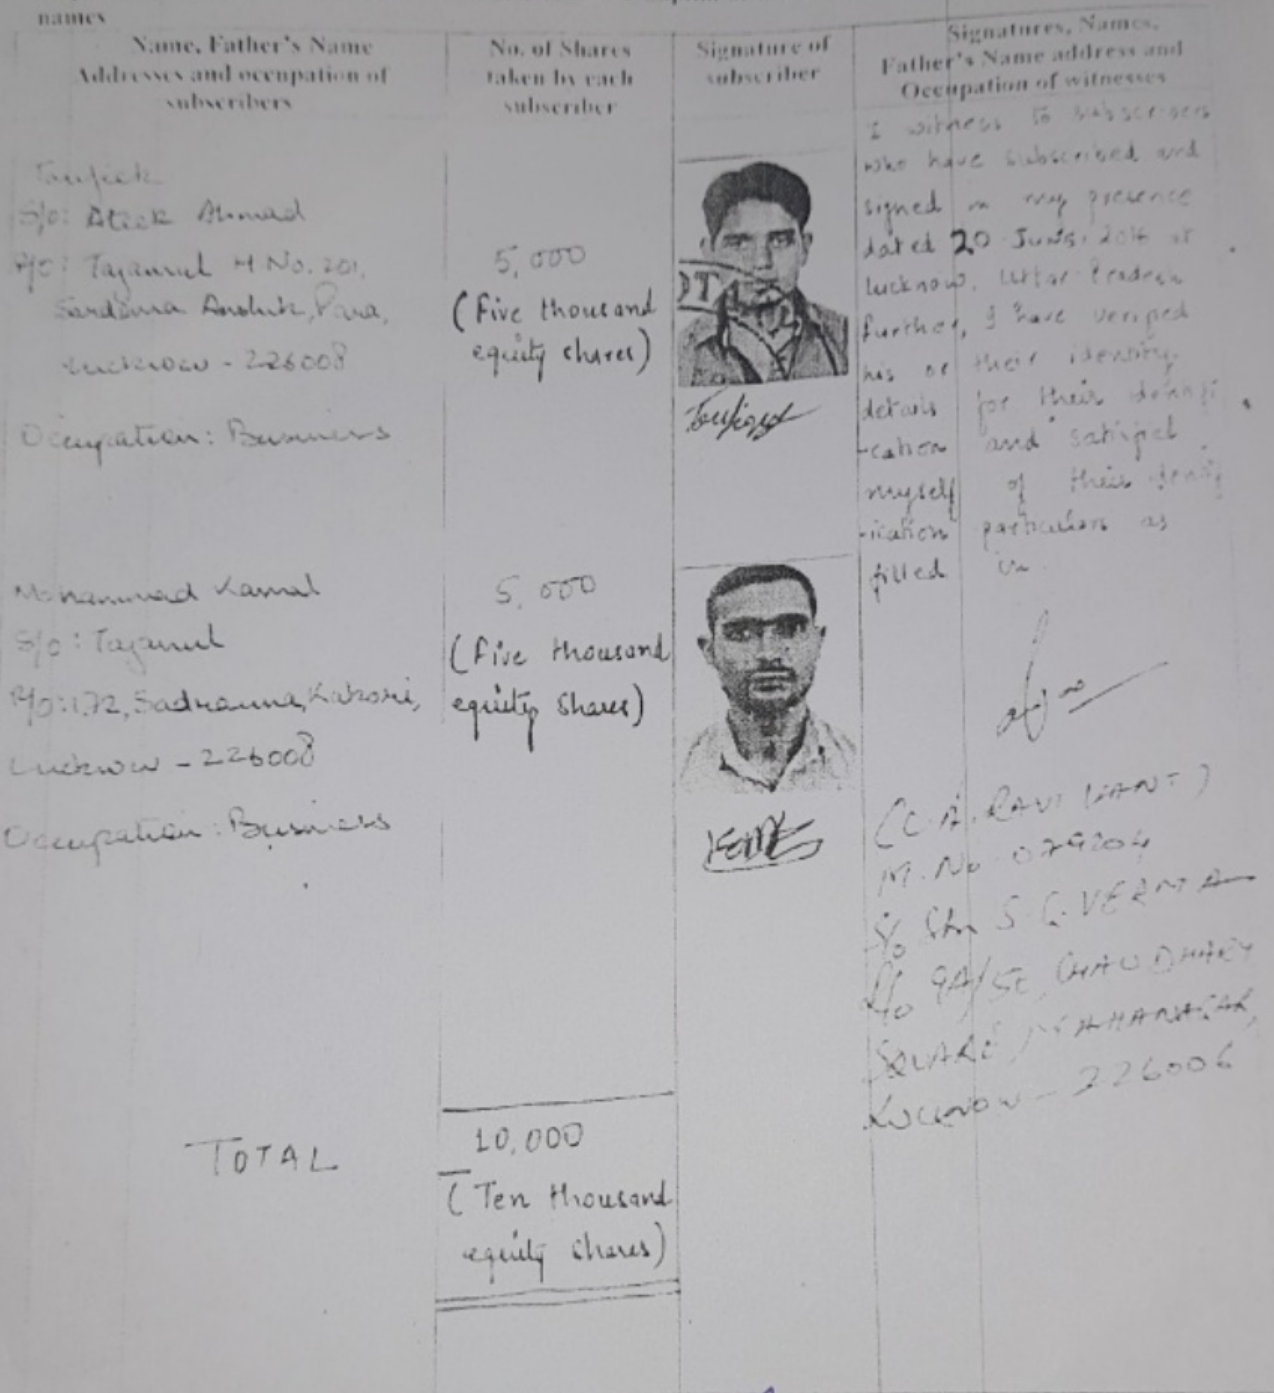 names
Name, Father's Name
Addresses and occupation of
subscribers
No. of Shares
taken by each
subscriber
Signature of
subscriber
Signatures, Names,
Father's Name address and
Occupation of witnesses
S/o: Ateek Ahmad
R/o: Tajamul H No. 201,
Para,
Lucknow - 226008
Occupation: Business
5,000
(five thousand
equity shares)
I witness to subscribers
who have subscribed and
signed in my presence
dated 20 June, 2016 at
Lucknow, Uttar Pradesh
further, I have verified
his or their identity
details for their identifi
-cation and satisfied
myself of their identif
-ication particulars as
filled in
Mohammad Kamal
S/o: Tajamul
R/o: 172, Sadrauna, Kakori,
Lucknow - 226008
Occupation: Business
5,000
(five thousand
equity shares)
(C.A. RAVI KANT)
M. No. 079204
S/o Shri S. C. VERMA
R/o CHAUDHARY
SQUARE, MAHANAGAR,
LUCKNOW - 226006
TOTAL
10,000
(Ten thousand
equity shares)